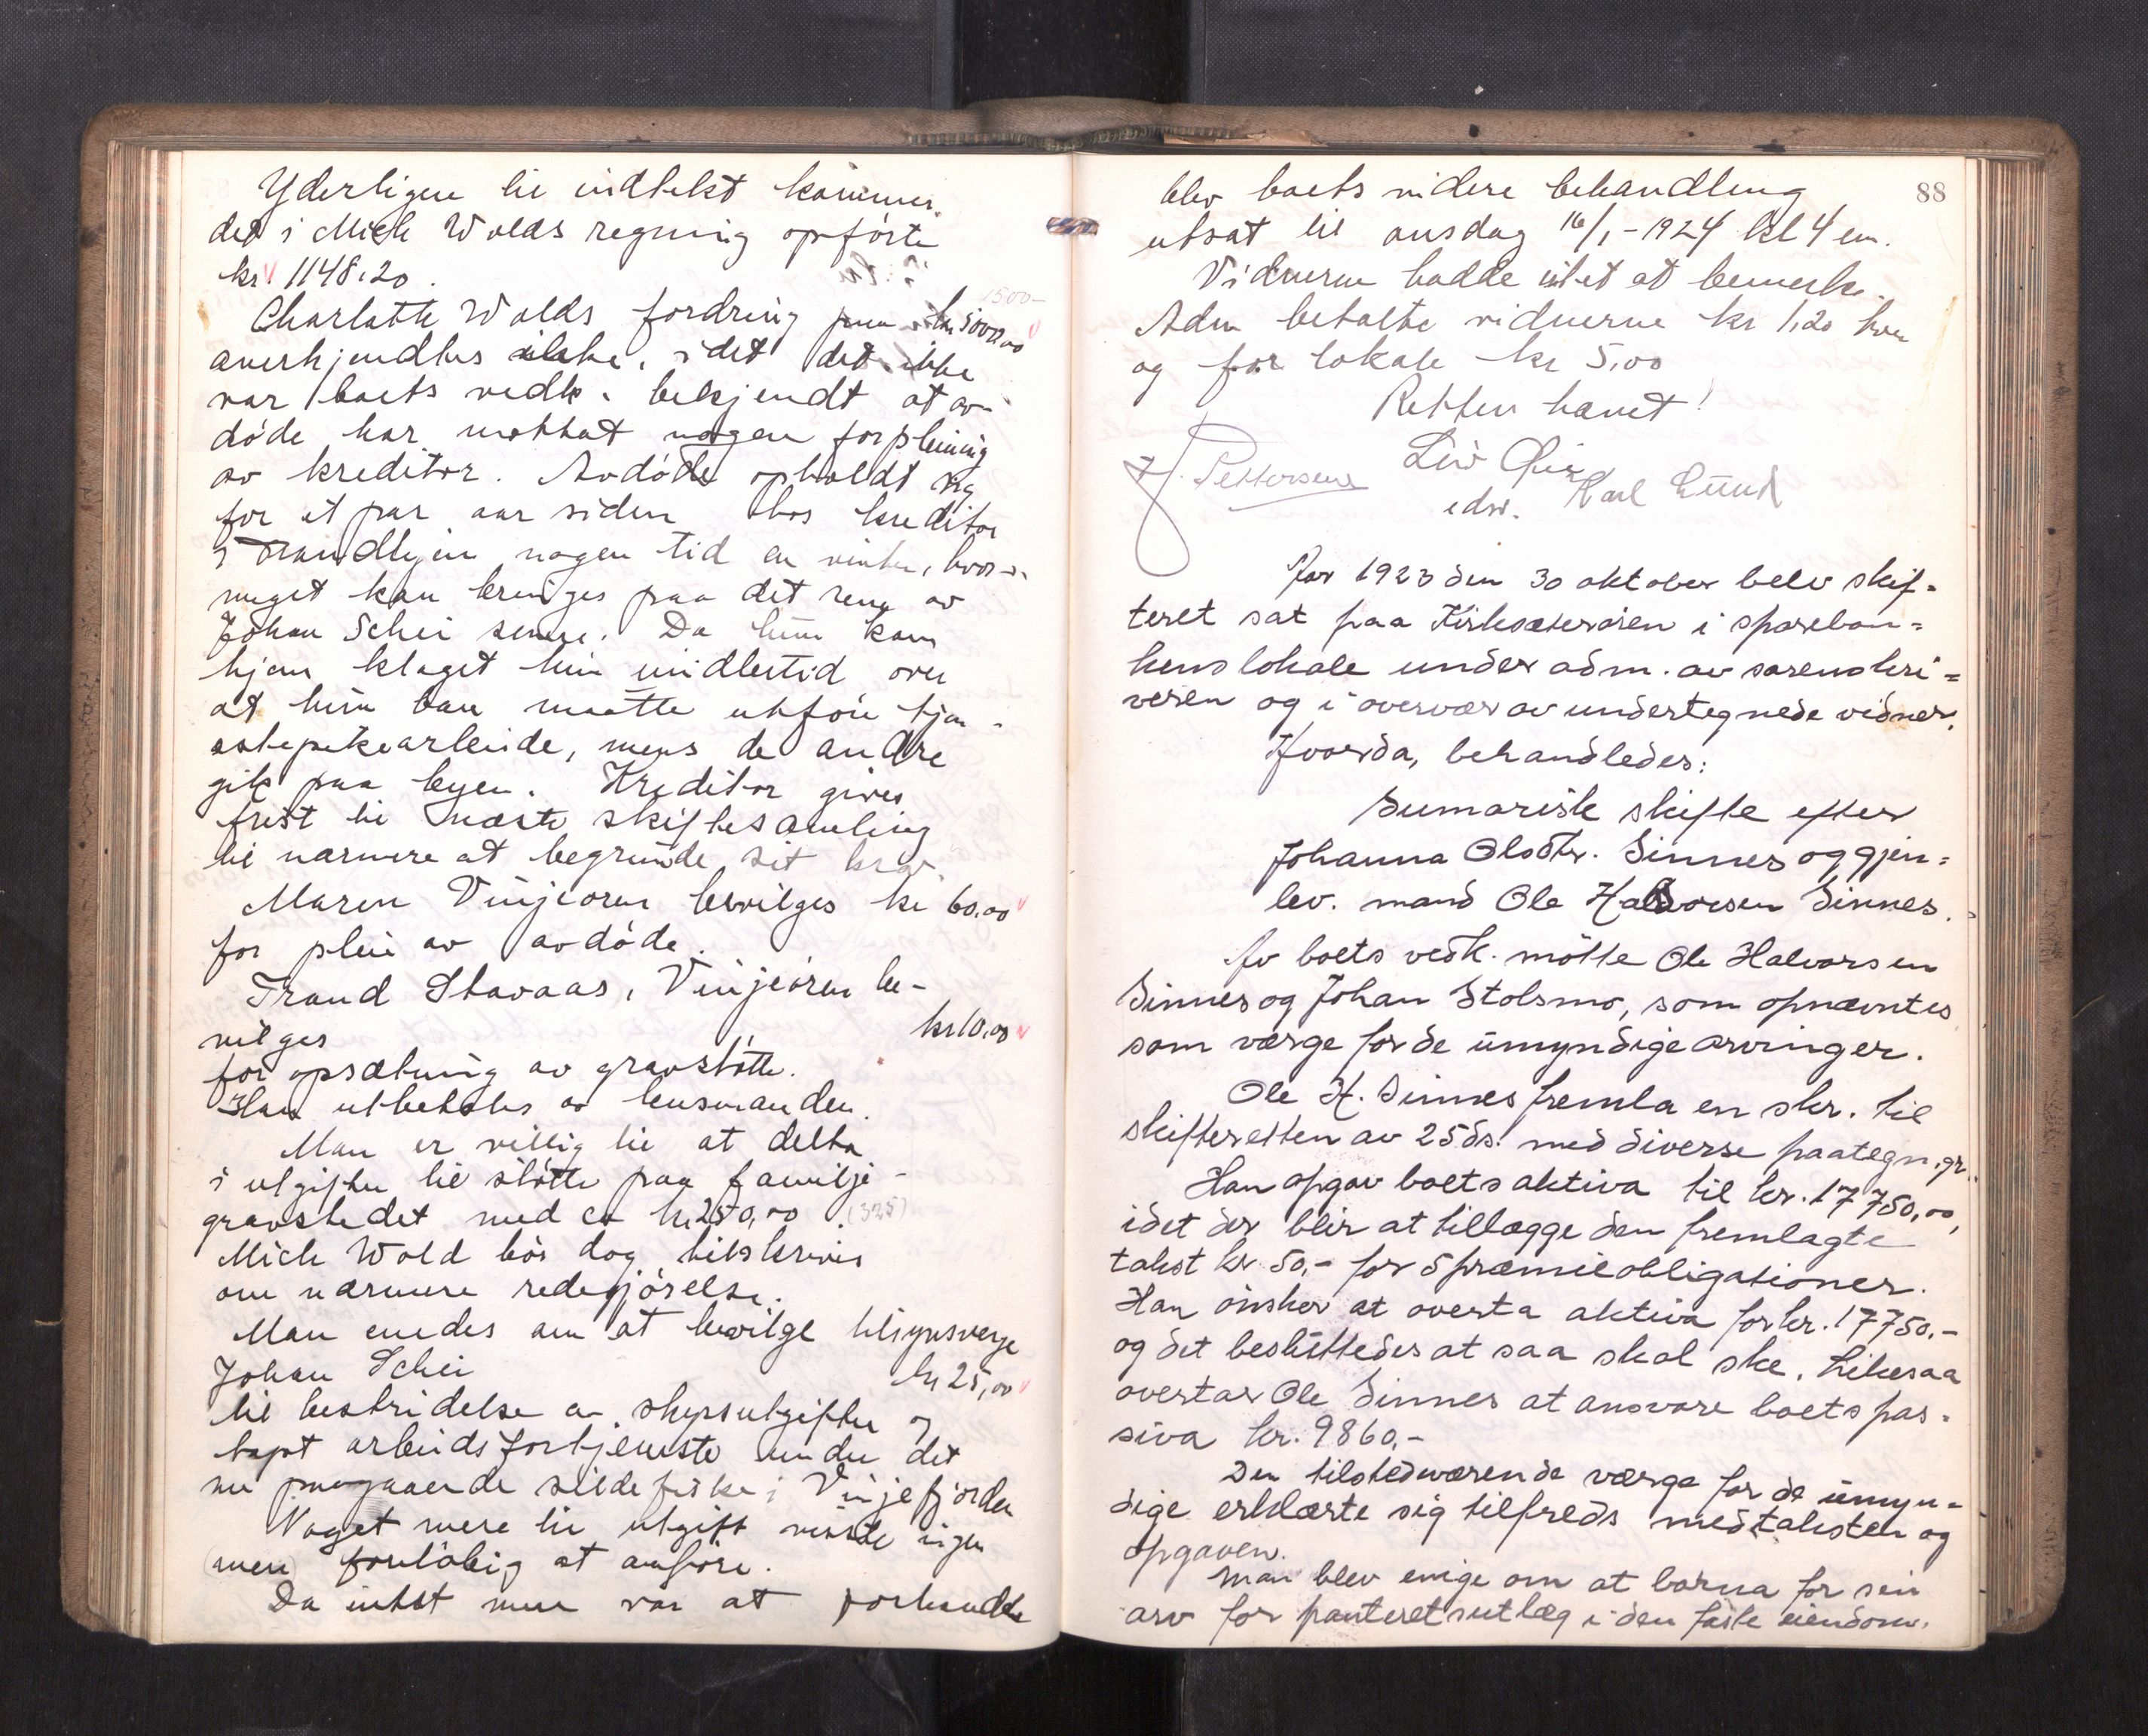 Yderligere til indtekt kommer
det i Mich Wolds regning opförte
kr 1148.20.
1500-
Charlotte Wolds fordring paa kr 5000,00
anerkjendtes ikke, idet det ikke
var boets vedk. bekjendt at av-
döde har mottat nogen forpleining
av kreditor. Avdöde opholdt sig
for et par aar siden hos kreditor
i Trandhjem nogen tid en vinter, hvor-
meget kan bringes paa det rene av
Johan Schei senere. Da hun kom
hjem klaget hun imidlertid over
at hun bare maatte utföre tjen-
estepikearbeide, mens de andre
gik paa byen. Kreditor gives
frist til næste skiftesamling
til nærmere at begrunde sit krav.
Maren Vinjeören bevilges kr 60,00
for pleie av avdöde.
Trond Stavaas, Vinjeören be-
vilges kr 10,00
for opsætning av gravstötte.
Han utbetales av lensmanden.
Man er villig til at delta
i utgifter til stötte paa familje-
gravstedet med ca kr 250,00 (325)
Mich Wold bör dog tilskrives
om nærmere redegjörelse.
Man enedes om at bevilge tilsynsverge
Johan Schei kr 25,00
til bestridelse av skysutgifter og
tapt arbeidsfortjeneste under det
nu paagaaende sildefiske i Vinjefjorden
Noget mere til utgift visste ingen
(mere) foreløbig at anføre.
Da intet mere var at forhandle
88
blev boets videre behandling
utsat til onsdag 16/1-1924 kl 4 em.
Vidnerne hadde intet at bemerke.
Adm betalte vidnerne kr 1,20 hver
og for lokale kr 5,00
Retten hævet!
J. Pettersen
edsv. Karl Lund
Aar 1923 den 30 oktober belv skif=
teret sat paa Kirksæterøren i spareban=
kens lokale under adm. av sorenskri=
veren og i overvær av undertegnede vidner.
Hvorda, behandledes:
Sumarisk skifte efter
Johanna Olsdtr. Sinnes og gjen=
lev. mand Ole Halvorsen Sinnes.
Av boets vedk. mötte Ole Halvorsen
Sinnes og Johan Stolsmo, som opnævntes
som værge for de umyndige arvinger.
Ole H. Sinnes fremla en skr. til
skifteretten av 25 ds. med diverse paategn.gr.
Han opgav boets aktiva til kr. 17750,00,
idet der blir at tillægge den fremlagte
takst kr 50,- for 5 præmieobligationer.
Han ønsker at overta aktiva for kr. 17750.-
og det besluttedes at saa skal ske. Likesaa
overtar Ole Sinnes at ansvare boets pas=
siva kr. 9860.-
Den tilstedværende værge for de umyn=
dige erklærte sig tilfreds med taksten og
opgaven.
Man blev enige om at barna for sin
arv for panteretsutlæg i den faste eiendom.